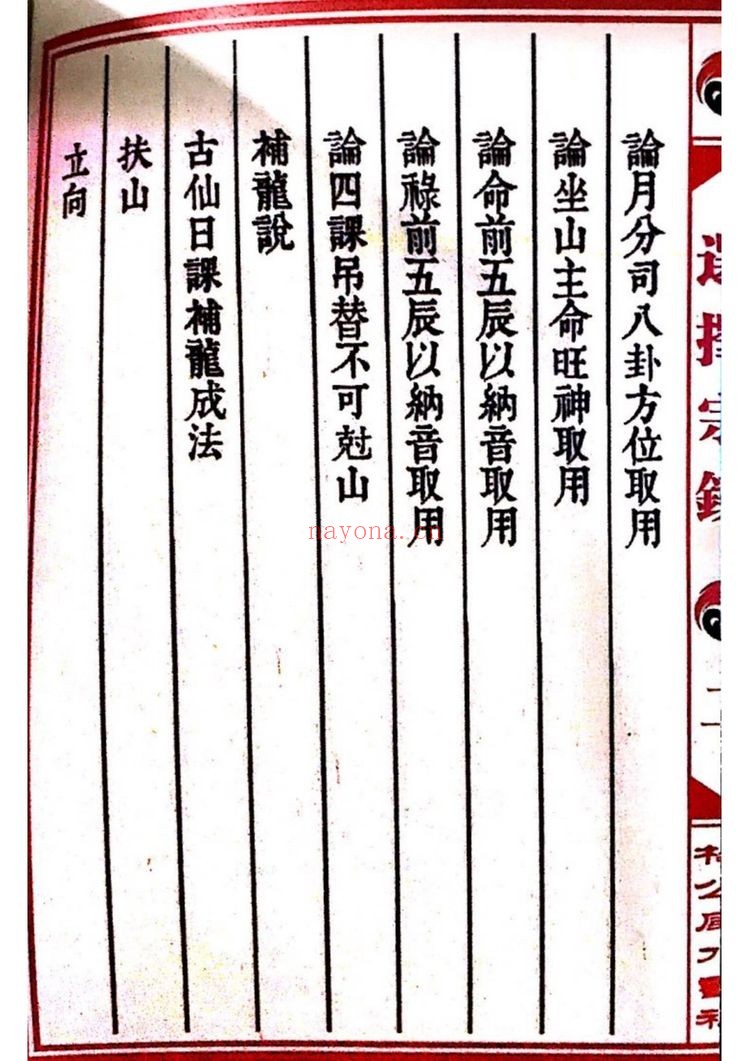 論月分司八卦方位取用
論坐山主命旺神取用
論命前五辰以納音取用
論祿前五辰以納音取用
論四課吊替不可尅山
補龍說
古仙日課補龍成法
扶山
立向
nayona.cn